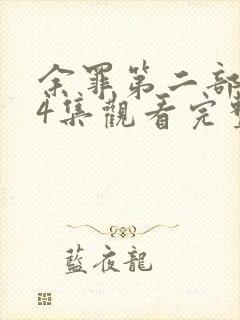 余罪第二部
4集觀看完整
藍夜龍